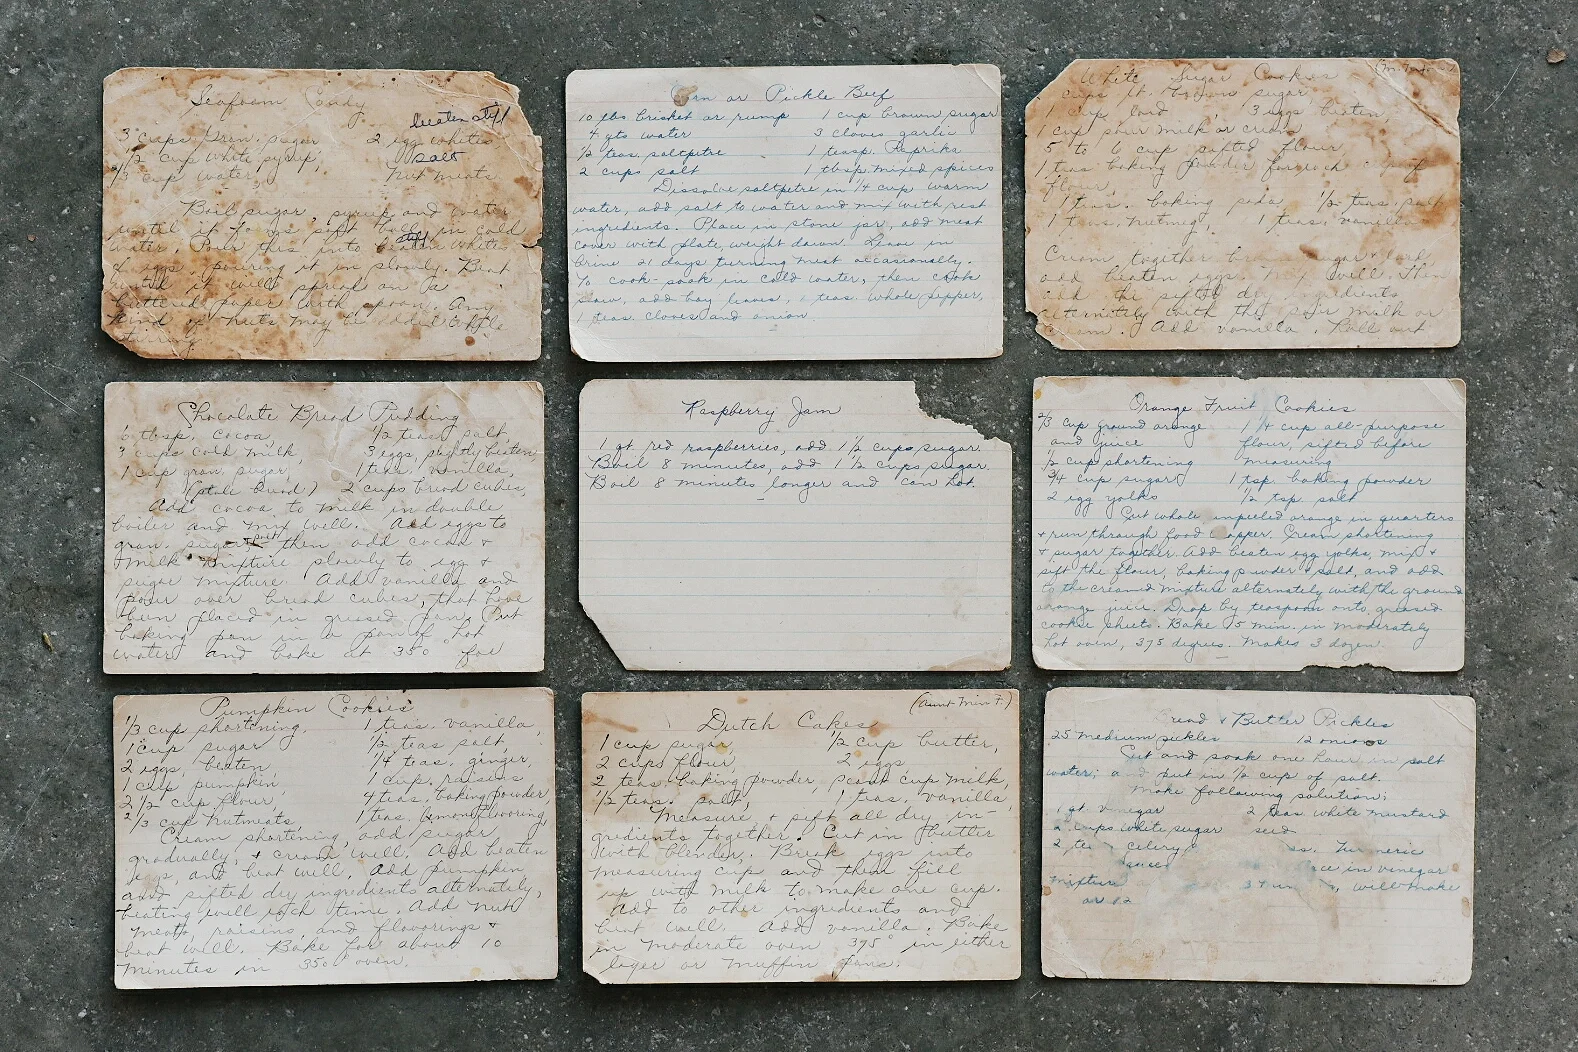 Seafoam Candy
beaten stiff
3 cups gran. sugar 2 egg whites
1/2 cup white syrup, salt
2/3 cup water, nut meats
Boil sugar, syrup and water
until it forms soft ball in cold
water. Pour this into stiff white
of eggs, pouring it in slowly. Beat
until it will spread on a
buttered paper with spoon. Any
kind of nuts may be added
Corn or Pickle Beef
10 lbs brisket or rump 1 cup brown sugar
4 qts water 3 cloves garlic
1/2 teas. saltpetre 1 teasp. Paprika
2 cups salt 1 tbsp. mixed spices
Dissolve saltpetre in 1/4 cup warm
water, add salt to water and mix with rest
ingredients. Place in stone jar, add meat
cover with plate, weight down. Leave in
brine 21 days turning meat occasionally.
To cook - soak in cold water, then cook
slow, add bay leaves, 1 teas. whole pepper,
1 teas. cloves and onion.
White Sugar Cookies
cups brown sugar
1 cup lard 3 eggs beaten,
1 cup sour milk or cream
5 to 6 cup sifted flour
1 teas baking powder for each cup of
flour,
1 teas. baking soda 1/2 teas. salt
1 teas. nutmeg, 1 teas. vanilla
Cream together brown sugar & lard,
add beaten eggs. Mix well. Then
add the sifted dry ingredients
alternately with the sour milk or
cream. Add vanilla. Roll out
Chocolate Bread Pudding
6 tbsp. cocoa, 1/2 teas. salt,
3 cups cold milk, 3 eggs, slightly beaten
1 cup gran. sugar, 1 teas. vanilla,
(stale bread) 2 cups bread cubes,
Add cocoa to milk in double
boiler and mix well. Add eggs to
gran. sugar & salt then add cocoa &
milk mixture slowly to egg &
sugar mixture. Add vanilla and
pour over bread cubes, that have
been placed in greased pan. Put
baking pan in a pan of hot
water and bake at 350 for
Raspberry Jam
1 qt. red raspberries, add 1 1/2 cups sugar.
Boil 8 minutes, add 1 1/2 cups sugar.
Boil 8 minutes longer and can hot.
Orange Fruit Cookies
2/3 cup ground orange 1 1/4 cup all-purpose
and juice flour, sifted before
1/2 cup shortening measuring
3/4 cup sugar 1 tsp baking powder
2 egg yolks 1/2 tsp. salt
Cut whole unpeeled orange in quarters
& run through food chopper. Cream shortening
& sugar together. Add beaten egg yolks, mix &
sift the flour, baking powder & salt, and add
to the creamed mixture alternately with the ground
orange juice. Drop by teaspoon onto greased
cookie sheets. Bake 15 min. in moderately
hot oven, 375 degrees. Makes 3 dozen.
Pumpkin Cookies
1/3 cup shortening, 1 teas. vanilla,
1 cup sugar 1/2 teas salt,
2 eggs, beaten 1/4 teas. ginger,
1 cup pumpkin, 1 cup. raisins
2 1/2 cup flour, 4 teas. baking powder,
2/3 cup nutmeats 1 teas. lemon flavoring
Cream shortening, add sugar
gradually, & cream well. Add beaten
eggs, and beat well. Add pumpkin,
and sifted dry ingredients alternately,
beating well each time. Add nut
meats, raisins and flavorings &
beat well. Bake for about 10
minutes in 350° oven.
(Aunt Min F.)
Dutch Cakes
1 cup sugar, 1/2 cup butter,
2 cups flour, 2 eggs
2 teas. baking powder, scant cup milk,
1/2 teas. salt, 1 teas. vanilla,
Measure & sift all dry in-
gredients together. Cut in butter
with blender. Break eggs into
measuring cup and then fill
up with milk to make one cup.
Add to other ingredients and
beat well. Add vanilla. Bake
in moderate oven 375° in either
layer or muffin pans.
Bread & Butter Pickles
25 medium pickles 12 onions
Cut and soak one hour in salt
water; and put in 1/2 cup of salt.
Make following solution:
1 qt. vinegar 2 teas white mustard
2 cups white sugar seed
2 celery Turmeric
in vinegar
mixture will make
or 12